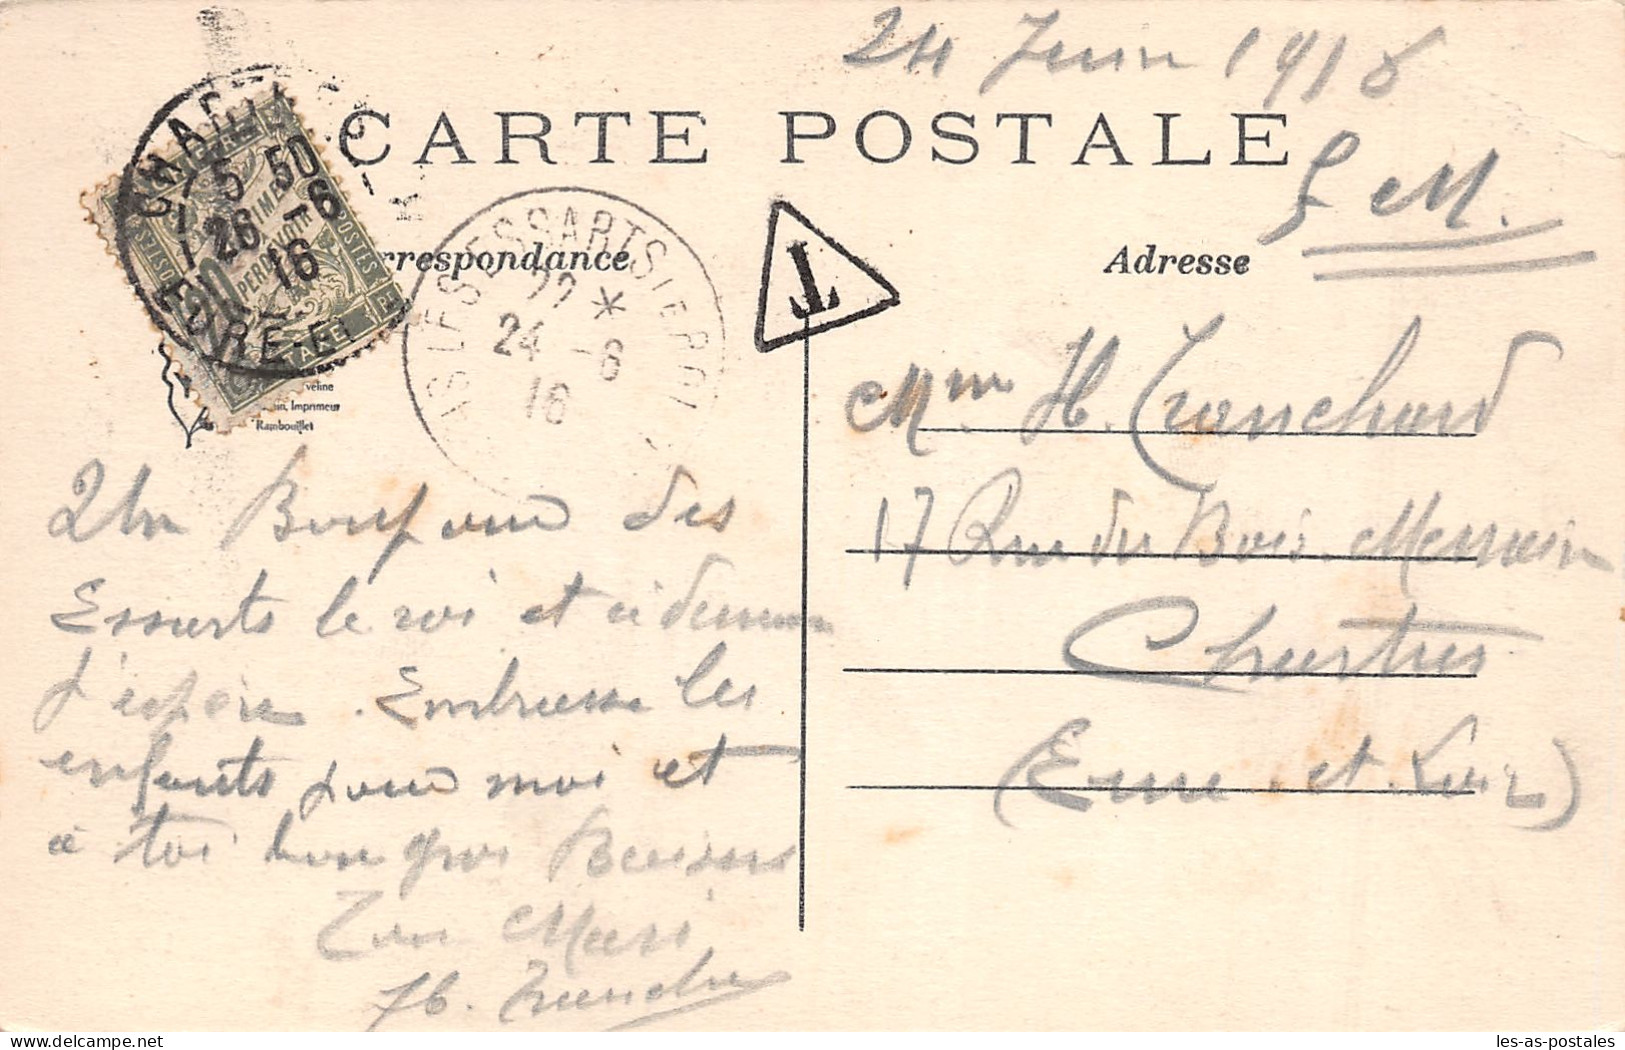 24 Juin 1916
CARTE POSTALE
F M.
CHARTRES
5 50
26 -6
16
EURE-E
10 CENTIMES
A PERCEVOIR
POSTES
CHIFFRE TAXE
LES ESSARTS LE ROI
22 *
24 -6
16
T
Correspondance
Adresse
veline
Imprimeur
Rambouillet
Mme H. Tranchard
17 Rue du Bois Merrain
Chartres
(Eure et Loir)
Un Bonjour des
Essarts le roi et à demain
j'espère. Embrasse les
enfants pour moi et
à toi bon gros Baisers
Ton Mari
H. Tranchard